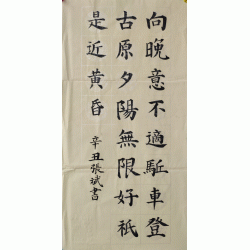 向晚意不適駈車登
古原夕陽無限好祇
是近黃昏
辛丑張斌書